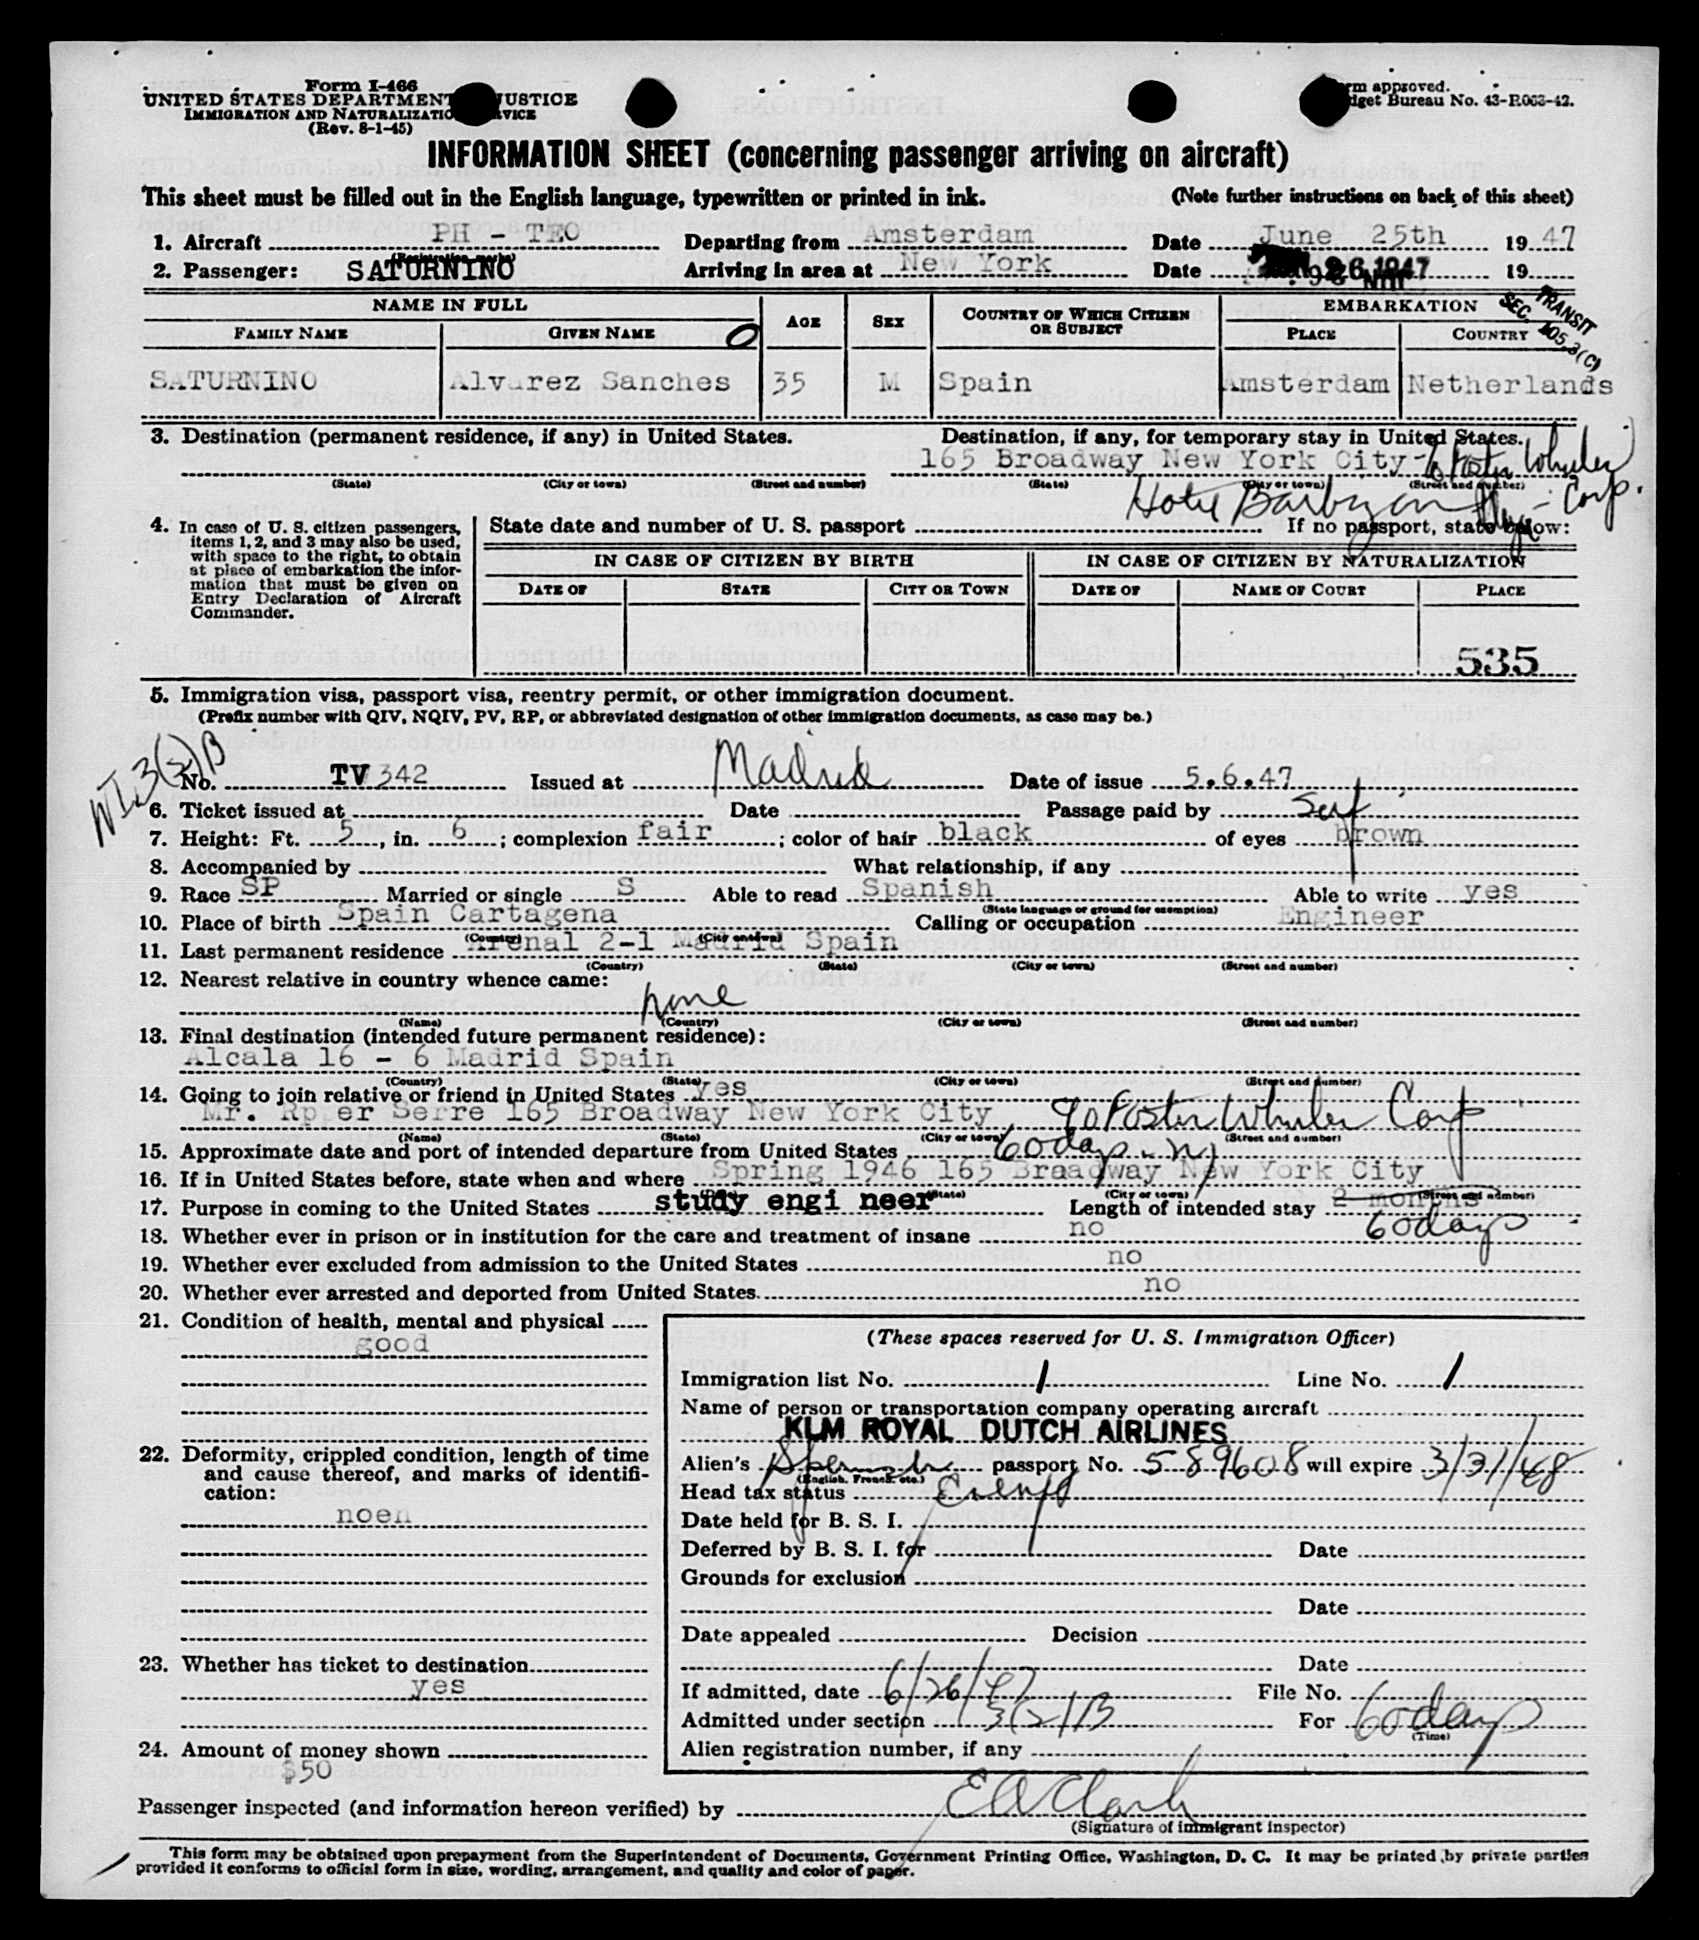 Form I-466
UNITED STATES DEPARTMENT JUSTICE
IMMIGRATION AND NATURALIZATION SERVICE
(Rev. 8-1-45)
Form approved.
Budget Bureau No. 43-R063-42.
INFORMATION SHEET (concerning passenger arriving on aircraft)
This sheet must be filled out in the English language, typewritten or printed in ink. (Note further instructions on back of this sheet)
1. Aircraft PH - TEO Departing from Amsterdam Date June 25th 1947
(Registration marks)
2. Passenger: SATURNINO Arriving in area at New York Date 26 1947 19
NAME IN FULL AGE SEX COUNTRY OF WHICH CITIZEN OR SUBJECT EMBARKATION
FAMILY NAME GIVEN NAME PLACE COUNTRY
TRANSIT
SEC. 105.3(C)
SATURNINO Alvarez Sanches 35 M Spain Amsterdam Netherlands
3. Destination (permanent residence, if any) in United States. Destination, if any, for temporary stay in United States.
165 Broadway New York City - c/o Foster Wheeler Corp.
(State) (City or town) (Street and number) (State) (City or town) (Street and number)
Hotel Barbizon Plaza
4. In case of U. S. citizen passengers, items 1, 2, and 3 may also be used, with space to the right, to obtain at place of embarkation the information that must be given on Entry Declaration of Aircraft Commander.
State date and number of U. S. passport If no passport, state below:
IN CASE OF CITIZEN BY BIRTH IN CASE OF CITIZEN BY NATURALIZATION
DATE OF STATE CITY OR TOWN DATE OF NAME OF COURT PLACE
535
5. Immigration visa, passport visa, reentry permit, or other immigration document.
(Prefix number with QIV, NQIV, PV, RP, or abbreviated designation of other immigration documents, as case may be.)
3(2)B
No. TV 342 Issued at Madrid Date of issue 5.6.47
6. Ticket issued at Date Passage paid by Self
7. Height: Ft. 5, in. 6; complexion fair; color of hair black of eyes brown
8. Accompanied by What relationship, if any
9. Race SP Married or single S Able to read Spanish Able to write yes
(State language or ground for exemption)
10. Place of birth Spain Cartagena Calling or occupation Engineer
(Country) (City or town)
11. Last permanent residence Arenal 2-1 Madrid Spain
(Country) (State) (City or town) (Street and number)
12. Nearest relative in country whence came:
none
(Name) (Country) (City or town) (Street and number)
13. Final destination (intended future permanent residence):
Alcala 16 - 6 Madrid Spain
(Country) (State) (City or town) (Street and number)
14. Going to join relative or friend in United States yes
Mr. Serre 165 Broadway New York City c/o Foster Wheeler Corp
(Name) (State) (City or town) (Street and number)
15. Approximate date and port of intended departure from United States 60 days - NY
16. If in United States before, state when and where Spring 1946 165 Broadway New York City
(State) (City or town) (Street and number)
17. Purpose in coming to the United States study engi neer Length of intended stay 2 months
60 days
18. Whether ever in prison or in institution for the care and treatment of insane no
19. Whether ever excluded from admission to the United States no
20. Whether ever arrested and deported from United States. no
21. Condition of health, mental and physical
good
22. Deformity, crippled condition, length of time and cause thereof, and marks of identification:
noen
23. Whether has ticket to destination
yes
24. Amount of money shown
$50
(These spaces reserved for U. S. Immigration Officer)
Immigration list No. 1 Line No. 1
Name of person or transportation company operating aircraft
KLM ROYAL DUTCH AIRLINES
Alien's Spanish passport No. 589608 will expire 3/31/48
(English, French, etc.)
Head tax status Exempt
Date held for B. S. I.
Deferred by B. S. I. for Date
Grounds for exclusion
Date
Date appealed Decision
Date
If admitted, date 6/26/47 File No.
Admitted under section 3(2)B For 60 days
(Time)
Alien registration number, if any
Passenger inspected (and information hereon verified) by E A Clark
(Signature of immigrant inspector)
This form may be obtained upon prepayment from the Superintendent of Documents, Government Printing Office, Washington, D. C. It may be printed by private parties
provided it conforms to official form in size, wording, arrangement, and quality and color of paper.